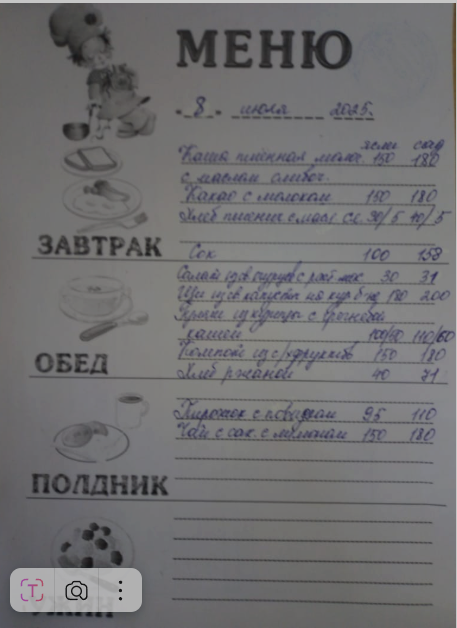 МЕНЮ
8 июля 2025.
ясли сад
Каша пшённая молоч. 150 180
с маслом сливоч.
Какао с молоком 150 180
Хлеб пшенич с масл сл. 30/5 40/5
ЗАВТРАК
Сок 100
Салат из св огурцов с раст мас 30
Щи из св капусты на кур б-не 180 200
из курицы с гречневой
кашей 110/60
ОБЕД
Компот из с/фруктов 150 180
Хлеб ржаной 40 71
Пирожок с повидлом 95 110
Чай с сах. с лимоном 150 180
ПОЛДНИК
УЖИН